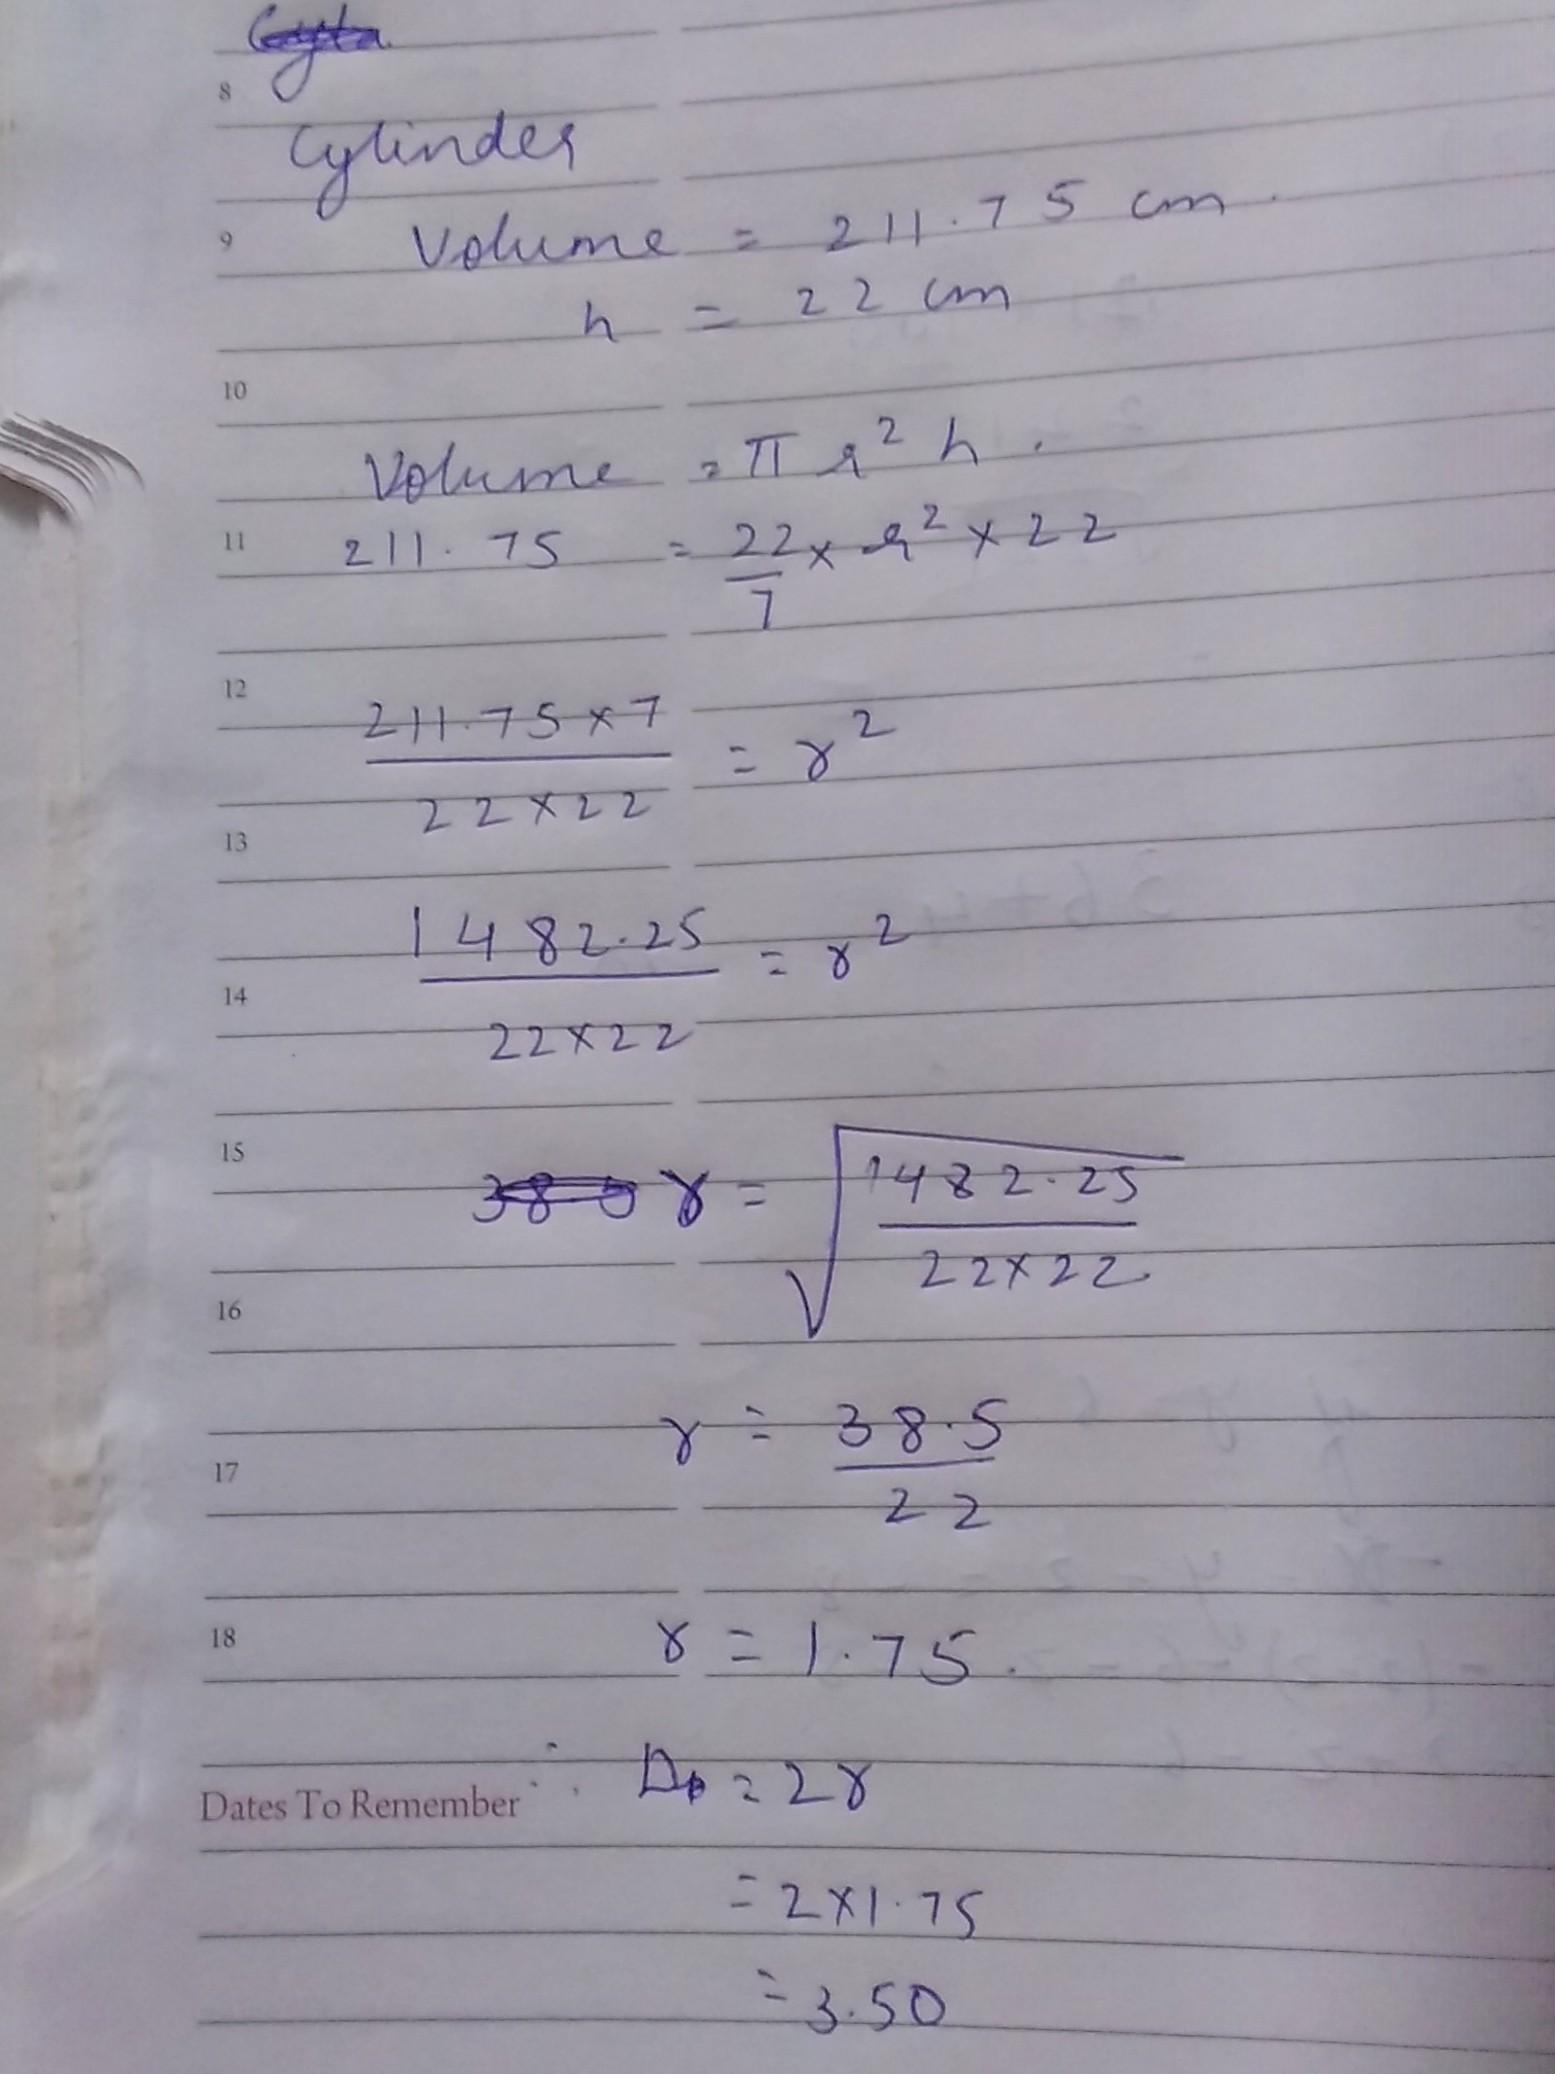 8
Cylinder
9 Volume = 211.75 cm.
h = 22 cm
10
Volume = π r² h.
11 211.75 = 22/7 × r² × 22
12
211.75 × 7 / 22 × 22 = r²
13
1482.25 / 22 × 22 = r²
14
15
r = √(1482.25 / 22 × 22)
16
r = 38.5 / 22
17
18 r = 1.75.
Dates To Remember ∴ D = 2r
= 2 × 1.75
= 3.50